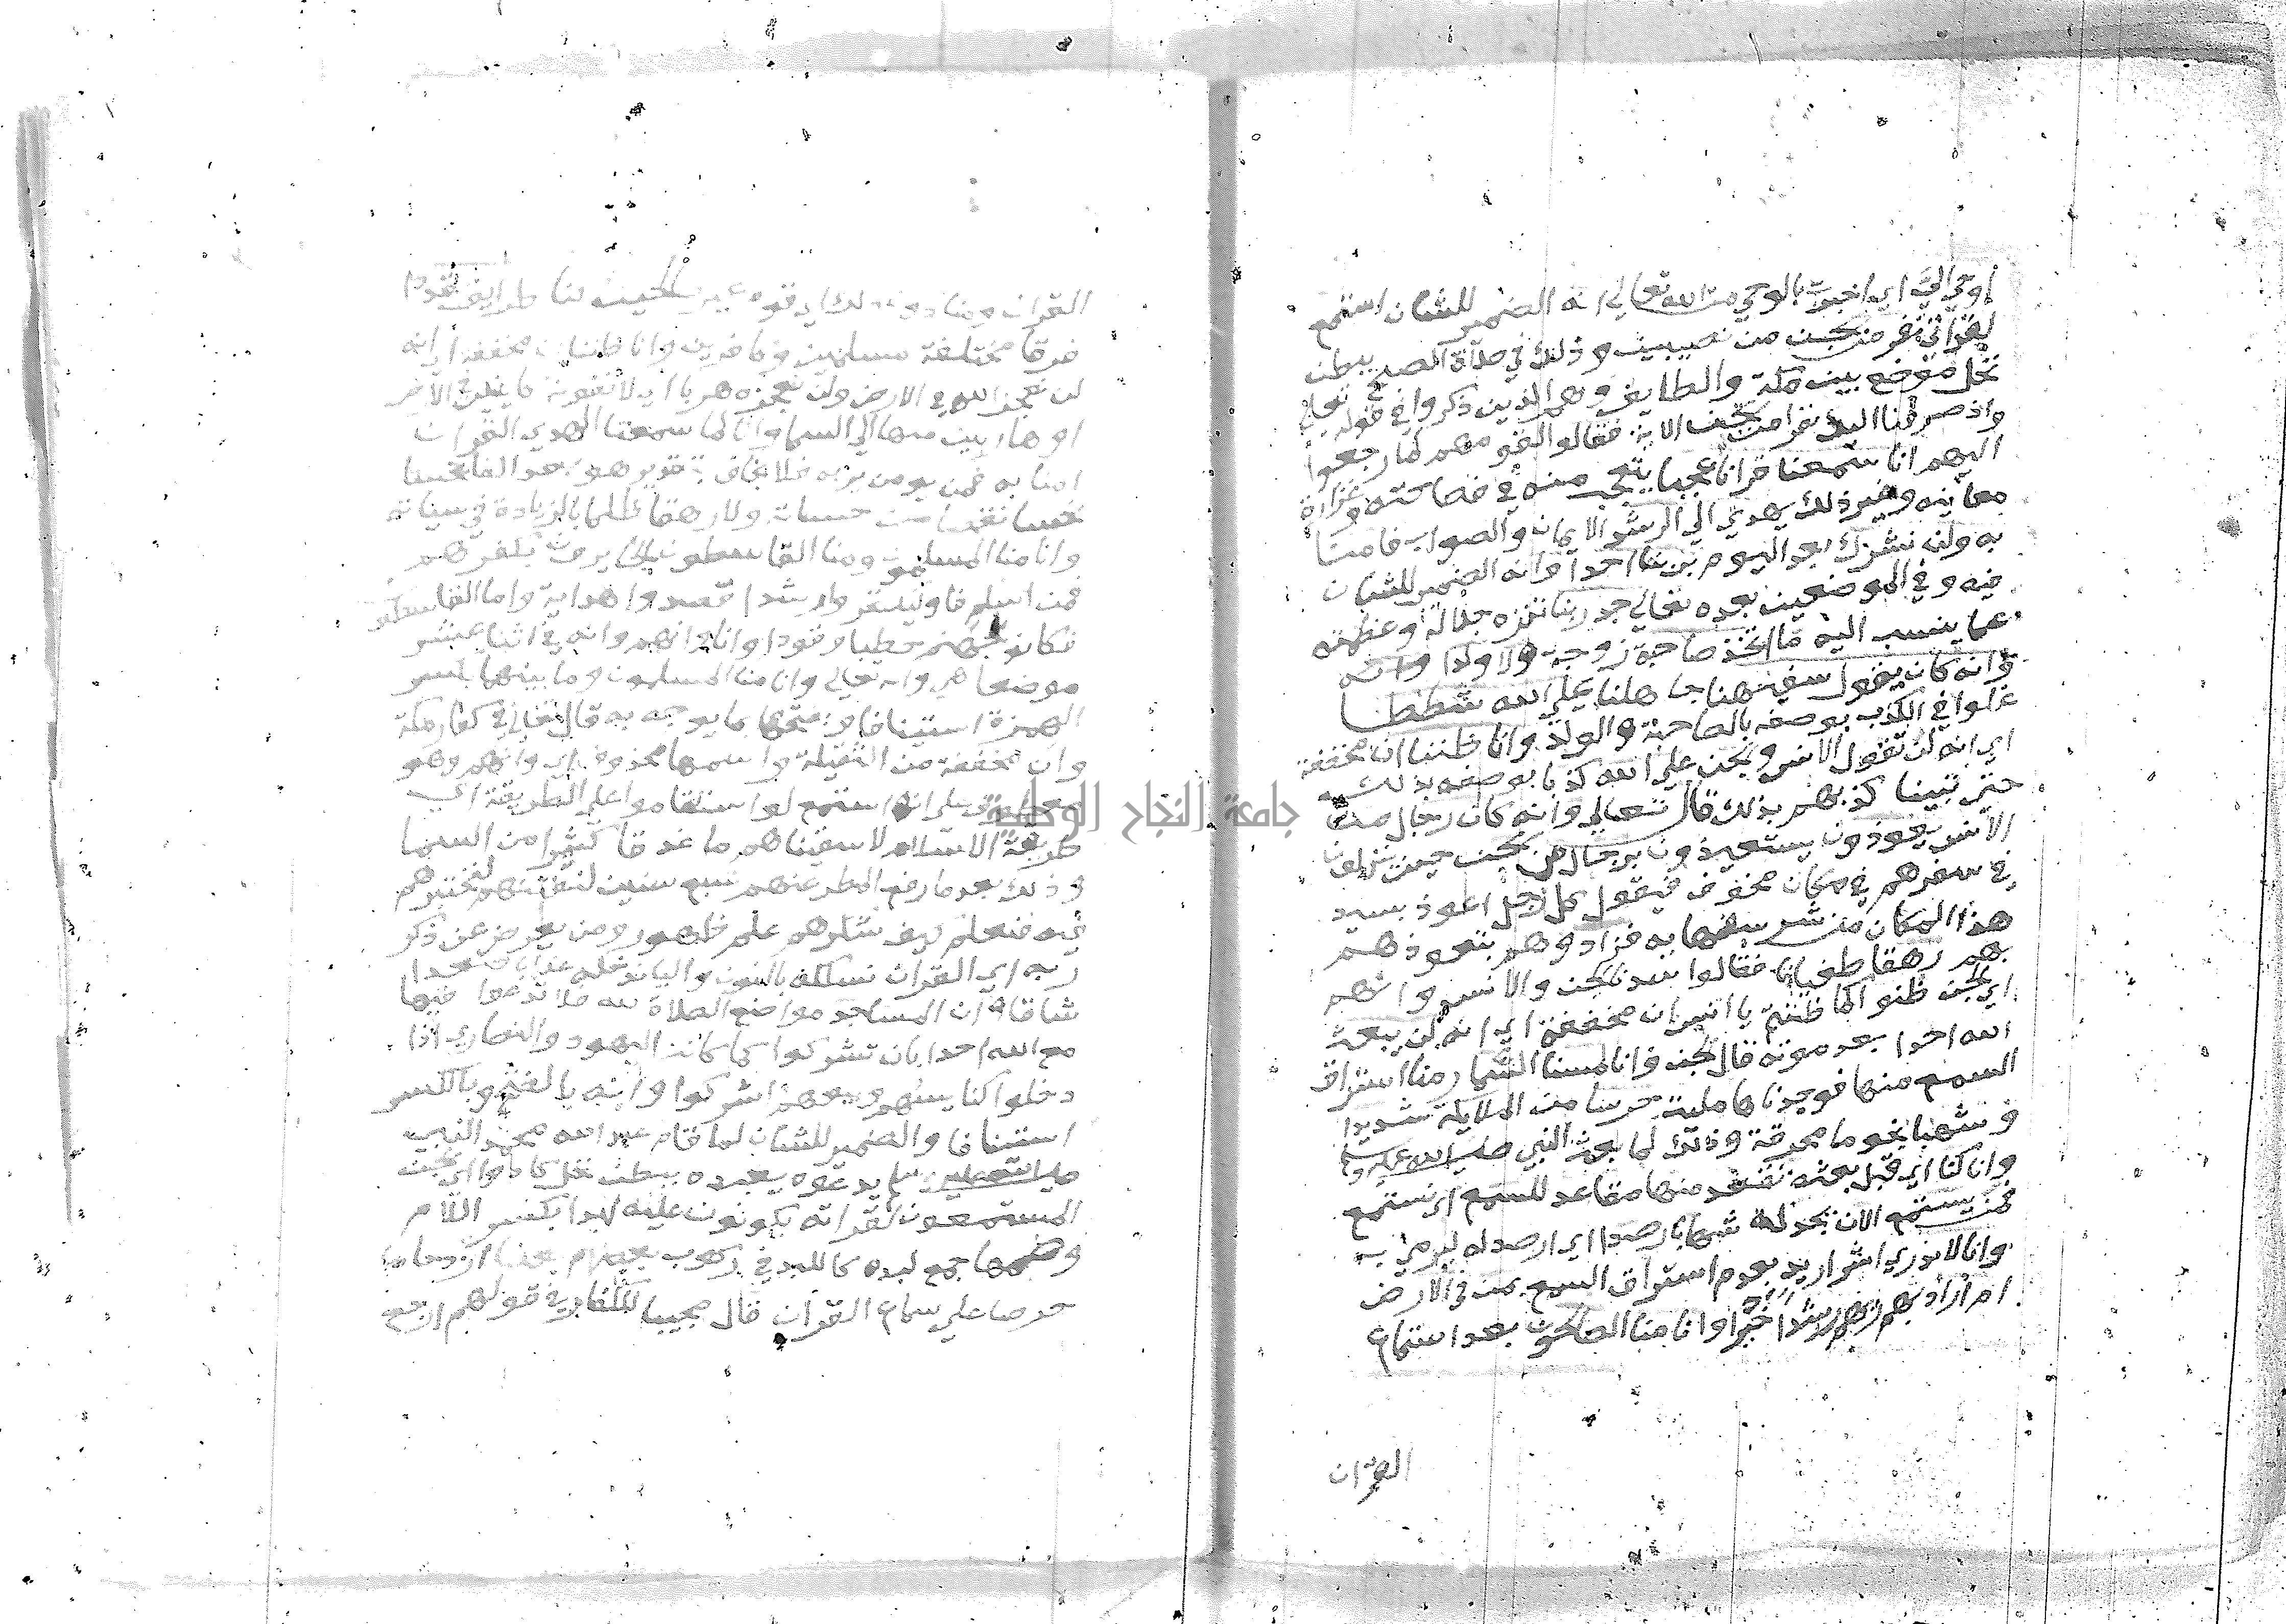 أوحي اليَّ اي اخبرت بالوحي من الله تعالي انه الضمير للشان استمع
لقراتي نفر من الجن من نصيبين وذلك في صلاة الصبح ببطن
نخل موضع بين مكة والطايف وهم الذين ذكروا في قوله تعالي
واذ صرفنا اليك نفرا من الجن الاية فقالوا لقومهم لما رجعوا
اليهم انا سمعنا قرانا عجبا يتعجب منه في فصاحته وغزارة
معانيه وغير ذلك يهدي الي الرشد الايمان والصواب فامنا
به ولن نشرك بعد اليوم بربنا احدا وانه الضمير للشان
فيه وفي الموضعين بعده تعالي جد ربنا تنزه جلاله وعظمته
عما ينسب اليه ما اتخذ صاحبة زوجة ولا ولدا وانه
وانه كان يقول سفيهنا جاهلنا علي الله شططا
غلوا في الكذب بوصفه بالصاحبة والولد وانا ظننا ان مخففة
اي انه لن تقول الانس والجن علي الله كذبا بوصفه بذلك
حتي تبينا كذبهم بذلك قال تعالي وانه كان رجال من
الانس يعوذون يستعيذون برجال من الجن حين ينزلون
في سفرهم في مكان مخوف فيقول كل رجل اعوذ بسيد
هذا المكان من شر سفهايه فزادوهم بتعوذهم
بهم رهقا طغيانا فقالوا سدنا الجن والانس وانهم
اي الجن ظنوا كما ظننتم يا انس ان مخففة اي انه لن يبعث
الله احدا بعد موته قال الجن وانا لمسنا السما رمنا استراق
السمع منها فوجدناها مليت حرسا من الملايكة شديدا
وشهبا نجوما محرقة وذلك لما بعث النبي صلي الله عليه وسلم
وانا كنا اي قبل بعثه نقعد منها مقاعد للسمع اي نستمع
فمن يستمع الان يجد له شهابا رصدا اي ارصد له ليرمي به
وانا لا ندري اشر اريد بعدم استراق السمع بمن في الارض
ام اراد بهم ربهم رشدا خيرا وانا منا الصالحون بعد استماع
القران
القران ومنا دون ذلك اي قوم غير صالحين كنا طرايق قددا
فرقا مختلفة مسلمين وكافرين وانا ظننا ان مخففة اي انه
لن نعجز الله في الارض ولن نعجزه هربا اي لا نفوته كاينين في الارض
او هاربين منها الي السما وانا لما سمعنا الهدي القران
امنا به فمن يومن بربه فلا يخاف بتقدير هو بعد الفا بخسا
نقصا من حسناته ولا رهقا ظلما بالزيادة في سياته
وانا منا المسلمون ومنا القاسطون الجايرون بكفرهم
فمن اسلم فاوليك تحروا رشدا قصدوا هداية واما القاسطون
فكانوا لجهنم حطبا وقودا وانا وانهم وانه في اثنا عشر
موضعا هي وانه تعالي وانا منا المسلمون وما بينهما بكسر
الهمزة استينافا وبفتحها بما يوجه به قال تعالي في كفار مكة
وان مخففة من الثقيلة واسمها محذوف اي وانهم وهو
معطوف علي انه استمع لو استقاموا علي الطريقة اي
طريقة الاسلام لاسقيناهم ما غدقا كثيرا من السما
وذلك بعد ما رفع المطر عنهم سبع سنين لنفتنهم لنختبرهم
فيه فنعلم كيف شكرهم علم ظهور ومن يعرض عن ذكر
ربه اي القران نسلكه بالنون واليا ندخله عذابا صعدا
شاقا وان المساجد مواضع الصلاة لله فلا تدعوا فيها
مع الله احدا بان تشركوا كما كانت اليهود والنصاري اذا
دخلوا كنايسهم وبيعهم اشركوا وانه بالفتح وبالكسر
استينافا والضمير للشان لما قام عبد الله محمد النبي
صلي الله عليه وسلم يدعوه يعبده ببطن نخل كادوا اي الجن
المستمعون لقراته يكونون عليه لبدا بكسر اللام
وضمها جمع لبده كاللبد في ركوب بعضهم بعضا ازدحاما
حرصا علي سماع القران قال مجيبا للكفار في قولهم ارجع
جامعة النجاح الوطنية